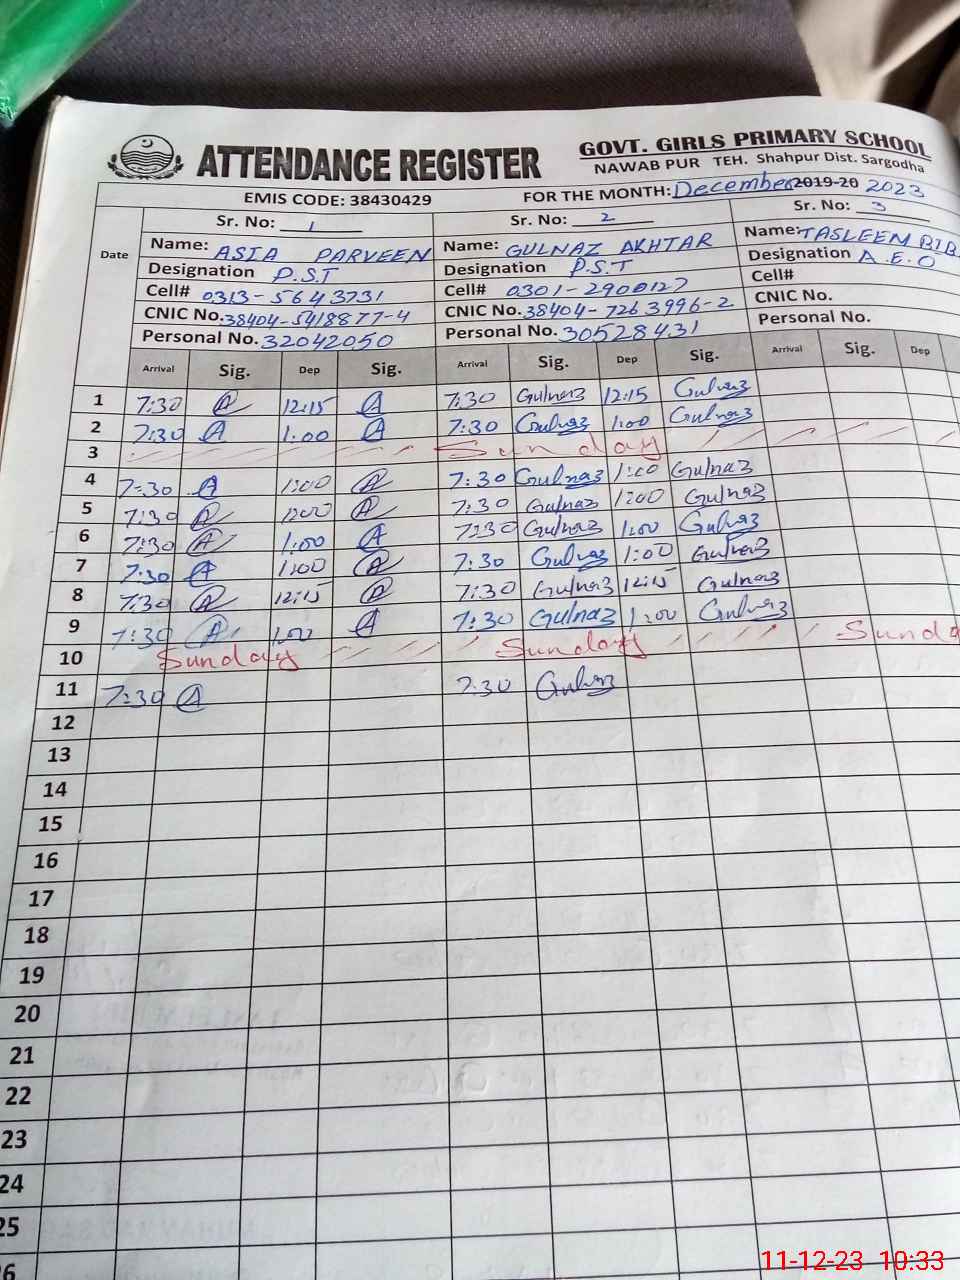 ATTENDANCE REGISTER
GOVT. GIRLS PRIMARY SCHOOL
NAWAB PUR TEH. Shahpur Dist. Sargodha
EMIS CODE: 38430429 FOR THE MONTH: December 2019-20 2023
Date Sr. No: 1 Sr. No: 2 Sr. No: 3
Name: ASIA PARVEEN Name: GULNAZ AKHTAR Name: TASLEEM BIB
Designation P.S.T Designation P.S.T Designation A.E.O
Cell# 0313-5643731 Cell# 0301-2900127 Cell#
CNIC No. 38404-5418877-4 CNIC No. 38404-7263996-2 CNIC No.
Personal No. 32042050 Personal No. 30528431 Personal No.
Arrival Sig. Dep Sig. Arrival Sig. Dep Sig. Arrival Sig. Dep
1 7:30 A 12:15 A 7:30 Gulnaz 12:15 Gulnaz
2 7:30 A 1:00 A 7:30 Gulnaz 1:00 Gulnaz
3 Sunday
4 7:30 A 1:00 A 7:30 Gulnaz 1:00 Gulnaz
5 7:30 A 1:00 A 7:30 Gulnaz 1:00 Gulnaz
6 7:30 A 1:00 A 7:30 Gulnaz 1:00 Gulnaz
7 7:30 A 1:00 A 7:30 Gulnaz 1:00 Gulnaz
8 7:30 A 12:15 A 7:30 Gulnaz 12:15 Gulnaz
9 7:30 A 1:00 A 7:30 Gulnaz 1:00 Gulnaz
10 Sunday Sunday Sunda
11 7:30 A 7:30 Gulnaz
12
13
14
15
16
17
18
19
20
21
22
23
24
25
6
11-12-23 10:33